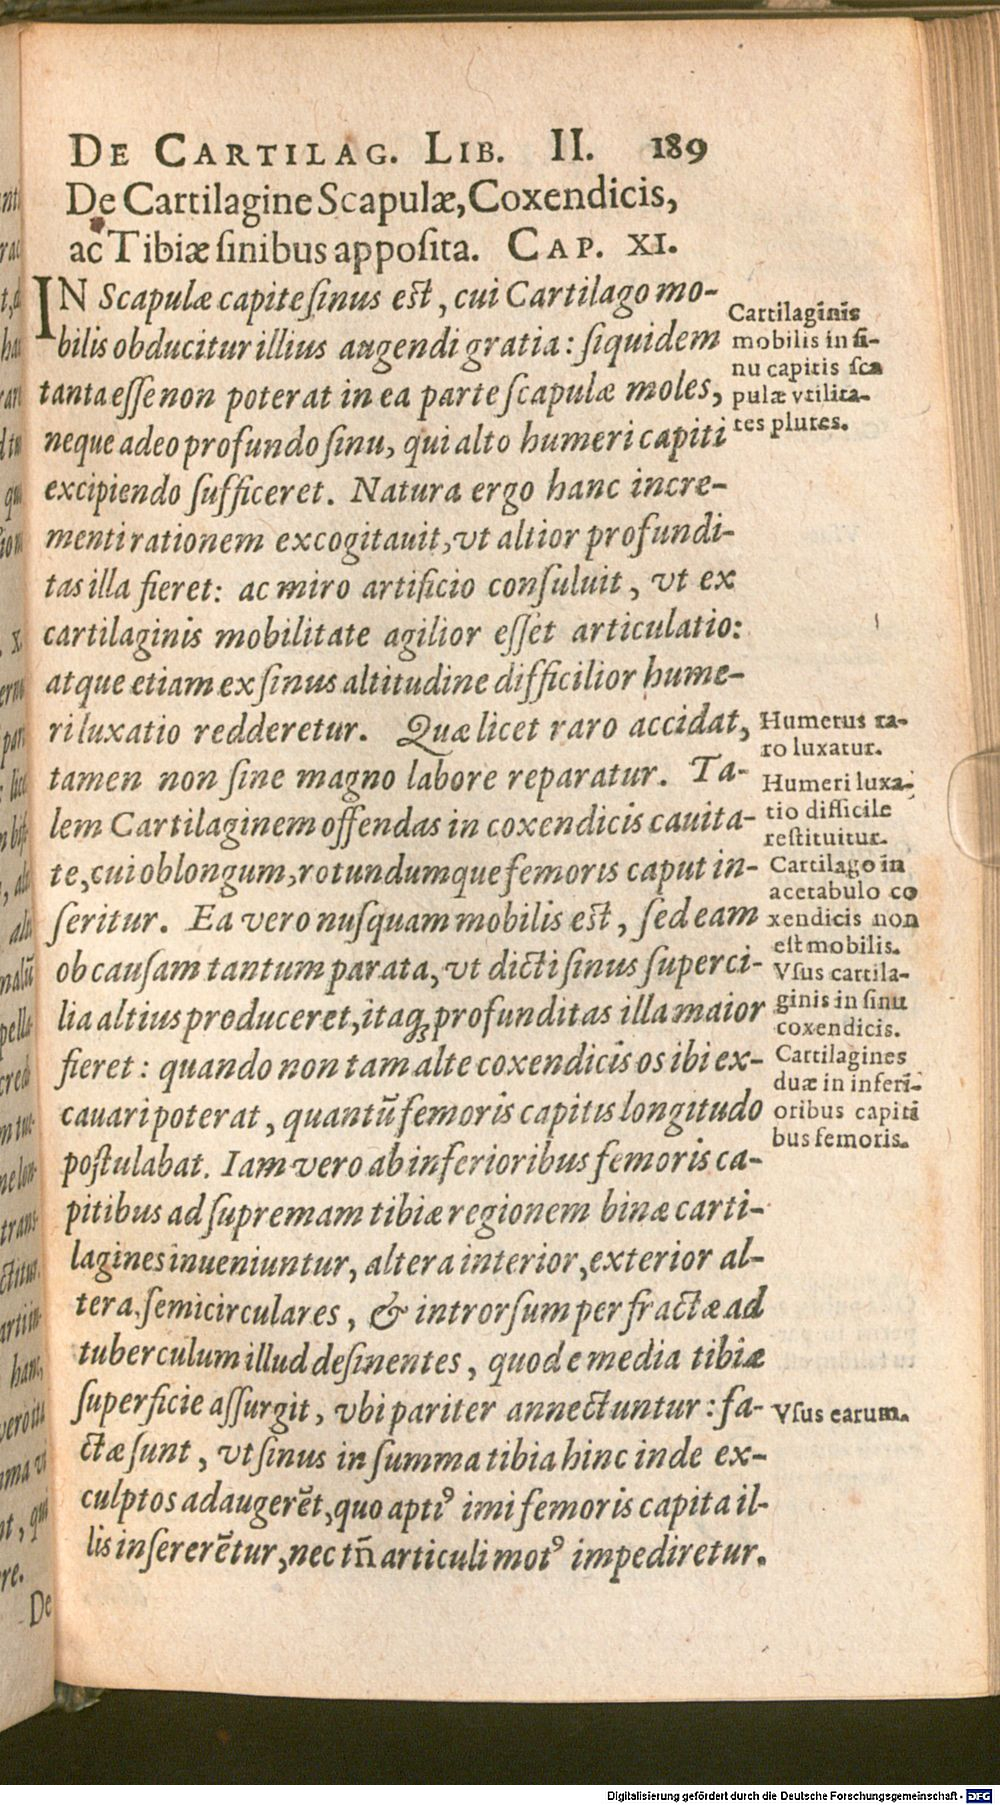 DE CARTILAG. LIB. II. 189
De Cartilagine Scapulæ, Coxendicis,
ac Tibiæ ſinibus appoſita. CAP. XI.
IN Scapulæ capite ſinus eſt, cui Cartilago mo-
bilis obducitur illius augendi gratia: ſiquidem
tanta eſſe non poterat in ea parte ſcapulæ moles,
neque adeo profundo ſinu, qui alto humeri capiti
excipiendo ſufficeret. Natura ergo hanc incre-
menti rationem excogitauit, vt altior profundi-
tas illa fieret: ac miro artificio conſuluit, vt ex
cartilaginis mobilitate agilior eſſet articulatio:
atque etiam ex ſinus altitudine difficilior hume-
ri luxatio redderetur. Quæ licet raro accidat,
tamen non ſine magno labore reparatur. Ta-
lem Cartilaginem offendas in coxendicis cauita-
te, cui oblongum, rotundumque femoris caput in-
ſeritur. Ea vero nuſquam mobilis eſt, ſed eam
ob cauſam tantum parata, vt dicti ſinus ſuperci-
lia altius produceret, itaq; profunditas illa maior
fieret: quando non tam alte coxendicis os ibi ex-
cauari poterat, quantū femoris capitis longitudo
poſtulabat. Iam vero ab inferioribus femoris ca-
pitibus ad ſupremam tibiæ regionem binæ carti-
lagines inueniuntur, altera interior, exterior al-
tera, ſemicirculares, & introrſum perfractæ ad
tuberculum illud deſinentes, quod e media tibiæ
ſuperficie aſſurgit, vbi pariter annectuntur: fa-
ctæ ſunt, vt ſinus in ſumma tibia hinc inde ex-
culptos adaugerēt, quo aptiꝰ imi femoris capita il-
lis inſererētur, nec tñ articuli motꝰ impediretur.
Cartilaginis
mobilis in ſi-
nu capitis ſca
pulæ vtilita-
tes plures.
Humerus ra-
ro luxatur.
Humeri luxa-
tio difficile
reſtituitur.
Cartilago in
acetabulo co
xendicis non
eſt mobilis.
Vſus cartila-
ginis in ſinu
coxendicis.
Cartilagines
duæ in inferi-
oribus capiti
bus femoris.
Vſus earum.
De
Digitalisierung gefördert durch die Deutsche Forschungsgemeinschaft - DFG